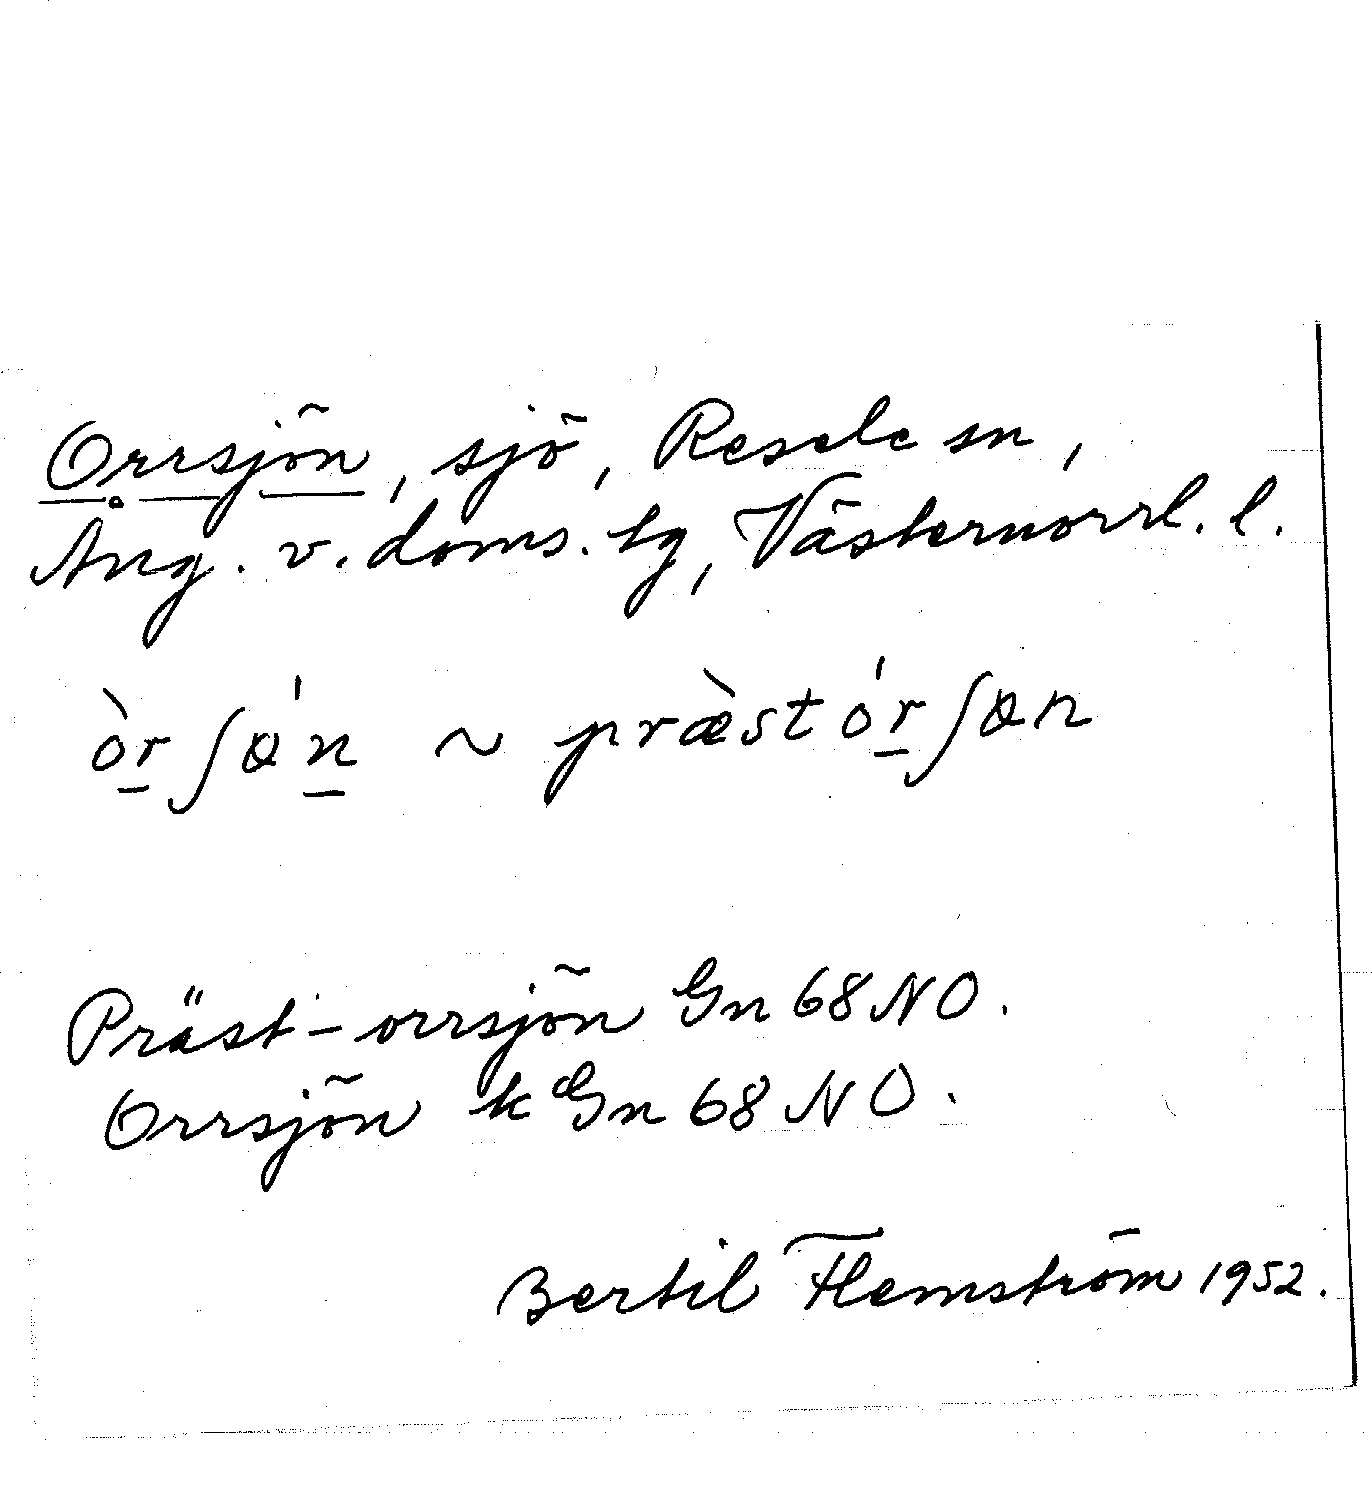 Orrsjön, sjö, Resele sn,
Ång. v. doms. tg, Västernorrl. l.
òr̲ʃøʹn̲ ~ præ̀stór̲ʃøn
Präst-orrsjön Gn 68 NO.
Orrsjön k Gn 68 NO.
Bertil Flemström 1952.